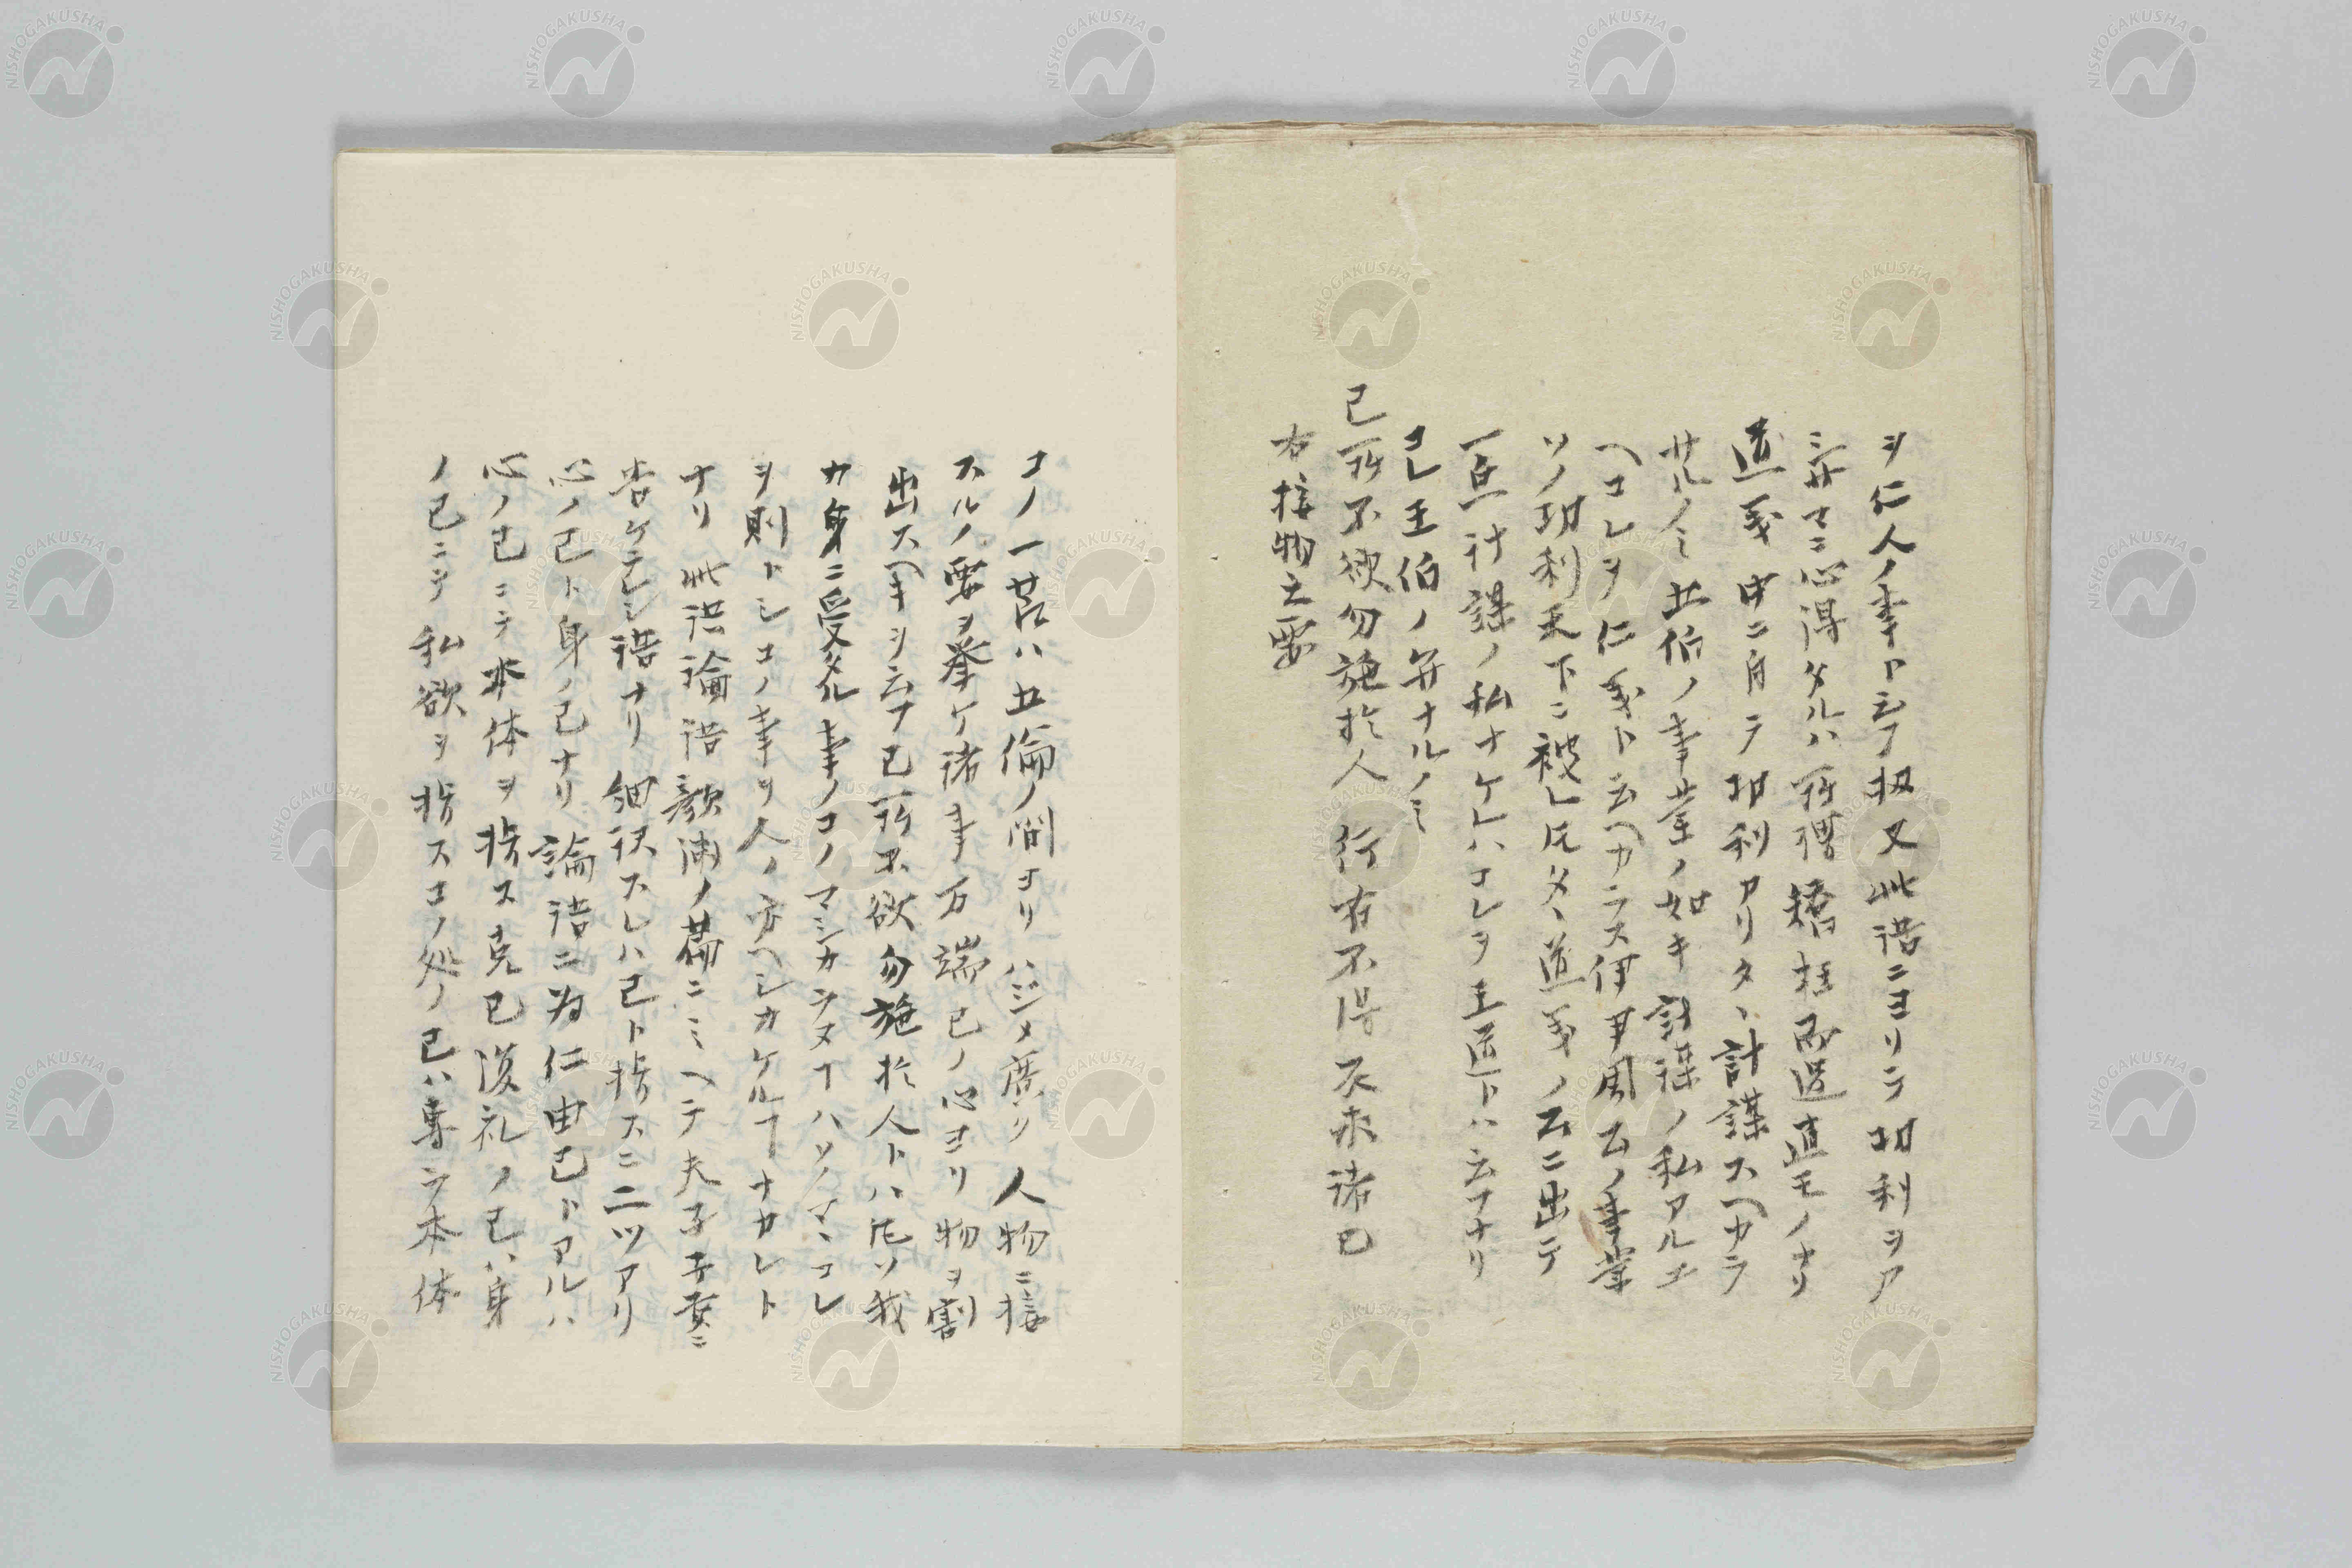 ヲ仁人ノ事ト云フ扨又此語ニヨリテ功利ヲア
シサマニ心得タルハ所謂矯枉而過直モノナリ
道義中ニ自テ功利アリタヽ計謀スヘカラ
サルノミ五伯ノ事業ノ如キ計謀ノ私アルユ
ヘコレヲ仁義ト云ヘカラス伊尹周公ノ事業
ソノ功利天下ニ被レ𪜈タヽ道義ノ公ニ出テ
一点計謀ノ私ナケレハコレヲ王道トハ云フナリ
コレ王伯ノ弁ナルノミ
己所不欲勿施於人 行有不得反求諸己
右接物之要
コノ一节ハ五倫ノ間ヨリハジメ廣ク人物ニ接
スルノ要ヲ挙ケ諸事万端己ノ心ヨリ物ヲ割
出スヘキヲ云フ己所不欲勿施於人トハ凡ソ我
カ身ニ受タル事ノコノマシカラヌヿハソノマヽコレ
ヲ則トシコノ事ヲ人ノ方ヘシカケルヿナカレト
ナリ此語論語顔淵ノ篇ニミヘテ夫子子貢ニ
告ケラレシ語ナリ細訳スレハ己ト指スニ二ツアリ
心ノ己ト身ノ己ナリ論語ニ為仁由己トアルハ
心ノ己ニテ本体ヲ指ス克己復礼ノ己ハ身
ノ己ニテ私欲ヲ指スコノ処ノ己ハ専ラ本体
NISHOGAKUSHA